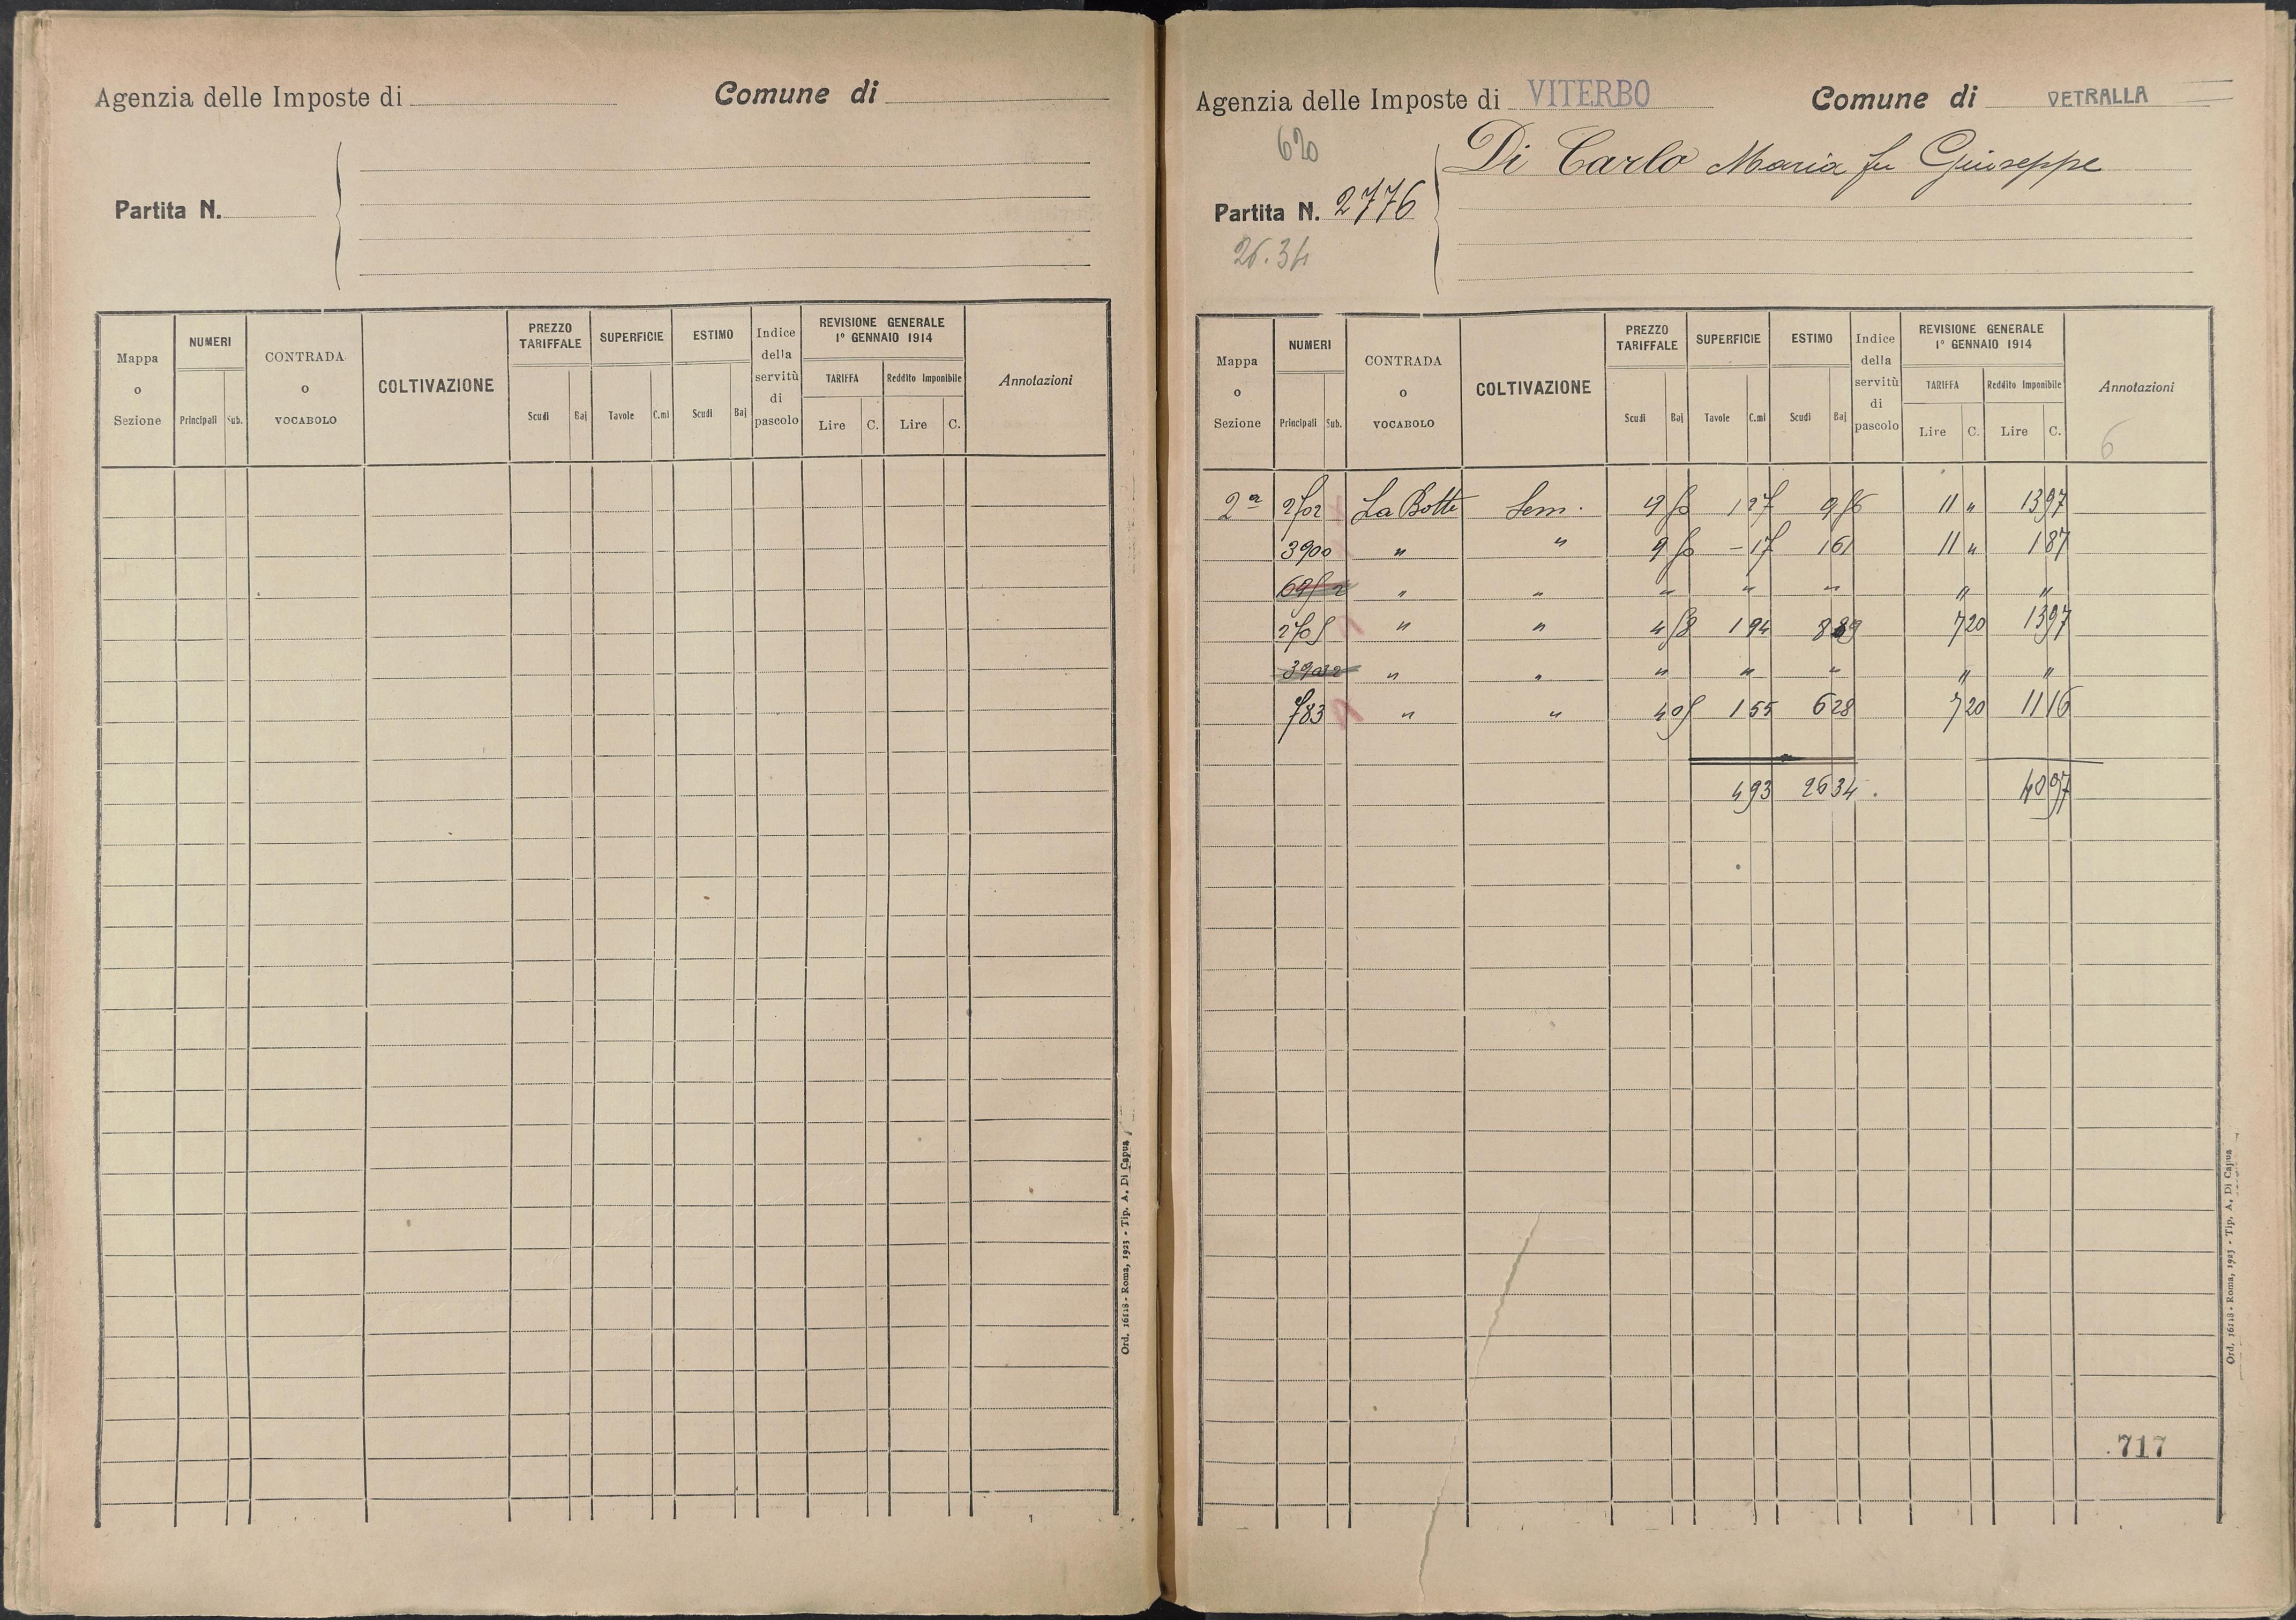 Agenzia delle Imposte di Comune di
Partita N.
Mappa o Sezione NUMERI Principali Sub. CONTRADA o VOCABOLO COLTIVAZIONE PREZZO TARIFFALE Scudi Baj SUPERFICIE Tavole C.mi ESTIMO Scudi Baj Indice della servitù di pascolo REVISIONE GENERALE 1° GENNAIO 1914 TARIFFA Lire C. Reddito Imponibile Lire C. Annotazioni
Ord. 16118 - Roma, 1923 - Tip. A. Di Capua
Agenzia delle Imposte di VITERBO Comune di VETRALLA
620
Di Carlo Maria fu Giuseppe
Partita N. 2776
26.34
Mappa o Sezione NUMERI Principali Sub. CONTRADA o VOCABOLO COLTIVAZIONE PREZZO TARIFFALE Scudi Baj SUPERFICIE Tavole C.mi ESTIMO Scudi Baj Indice della servitù di pascolo REVISIONE GENERALE 1° GENNAIO 1914 TARIFFA Lire C. Reddito Imponibile Lire C. Annotazioni
6
2ª La Botte Sem. 11 " 13 97
3900 " " 161 11 " 1 87
" " " " " " "
" " 1 94 8 89 7 20 13 97
" " " " " " "
783 " " 1 55 6 28 7 20 11 16
4 93 26 34 40 97
717
Ord. 16118 - Roma, 1923 - Tip. A. Di Capua